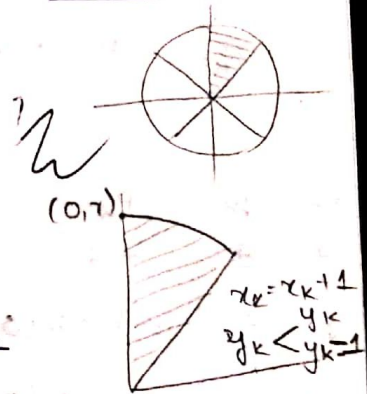 (0,r)
xₖ = xₖ+1
yₖ
yₖ < yₖ-1